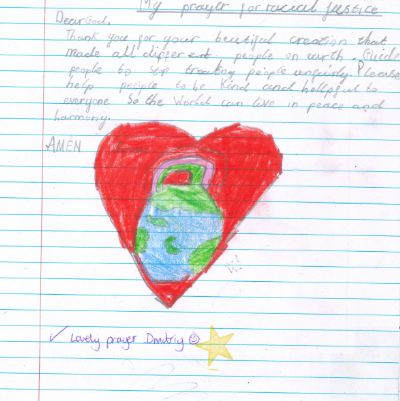 My prayer for racial justice
Dear God,
Thank you for your beutiful creation that
made all different people on earth. Guide
people to stop treating people unfairly. Please
help people to be kind and helpful to
everyone so the world can live in peace and
harmony.
AMEN
✓ Lovely prayer Dmitriy ☺